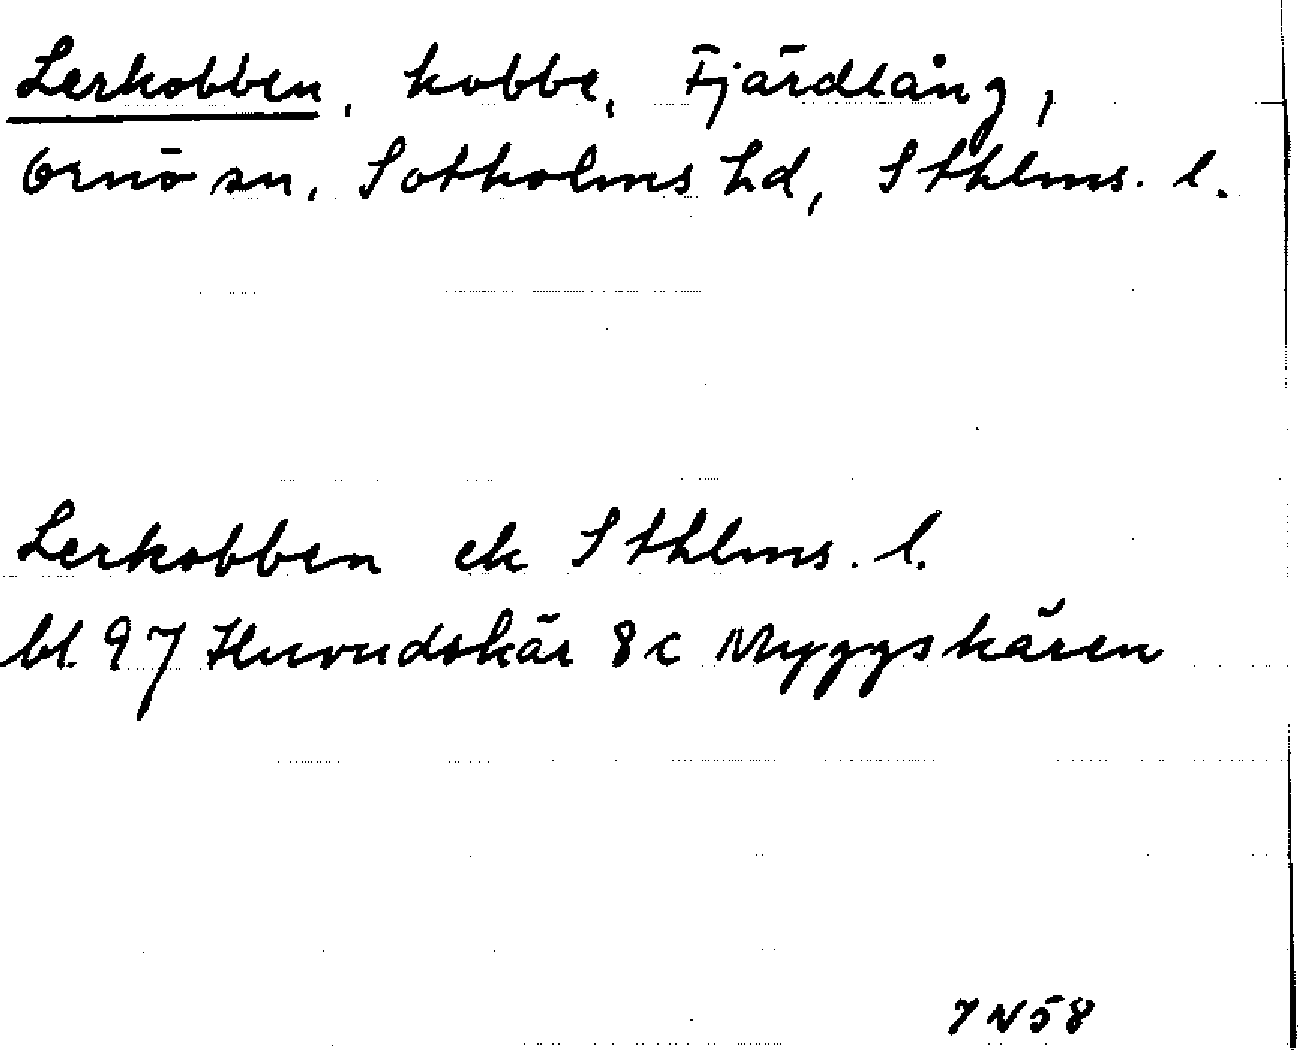 Lerkobben, kobbe, Fjärdlång,
Ornö sn, Sotholms hd, Sthlms. l.
Lerkobben ek Sthlms. l.
bl 97 Huvudskär 8c Myggskären
7 N 58